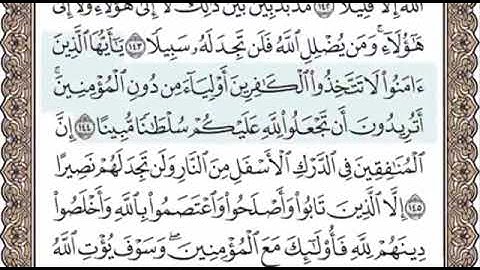 اللَّهَ إِلَّا قَلِيلًا ١٤٢ مُّذَبْذَبِينَ بَيْنَ ذَٰلِكَ لَا إِلَىٰ هَٰؤُلَاءِ وَلَا إِلَىٰ
هَٰؤُلَاءِ ۚ وَمَن يُضْلِلِ اللَّهُ فَلَن تَجِدَ لَهُ سَبِيلًا ١٤٣ يَٰأَيُّهَا الَّذِينَ
ءَامَنُوا لَا تَتَّخِذُوا الْكَٰفِرِينَ أَوْلِيَاءَ مِن دُونِ الْمُؤْمِنِينَ ۚ
أَتُرِيدُونَ أَن تَجْعَلُوا لِلَّهِ عَلَيْكُمْ سُلْطَٰنًا مُّبِينًا ١٤٤ إِنَّ
الْمُنَٰفِقِينَ فِي الدَّرْكِ الْأَسْفَلِ مِنَ النَّارِ وَلَن تَجِدَ لَهُمْ نَصِيرًا
١٤٥ إِلَّا الَّذِينَ تَابُوا وَأَصْلَحُوا وَاعْتَصَمُوا بِاللَّهِ وَأَخْلَصُوا
دِينَهُمْ لِلَّهِ فَأُولَٰئِكَ مَعَ الْمُؤْمِنِينَ ۖ وَسَوْفَ يُؤْتِ اللَّهُ